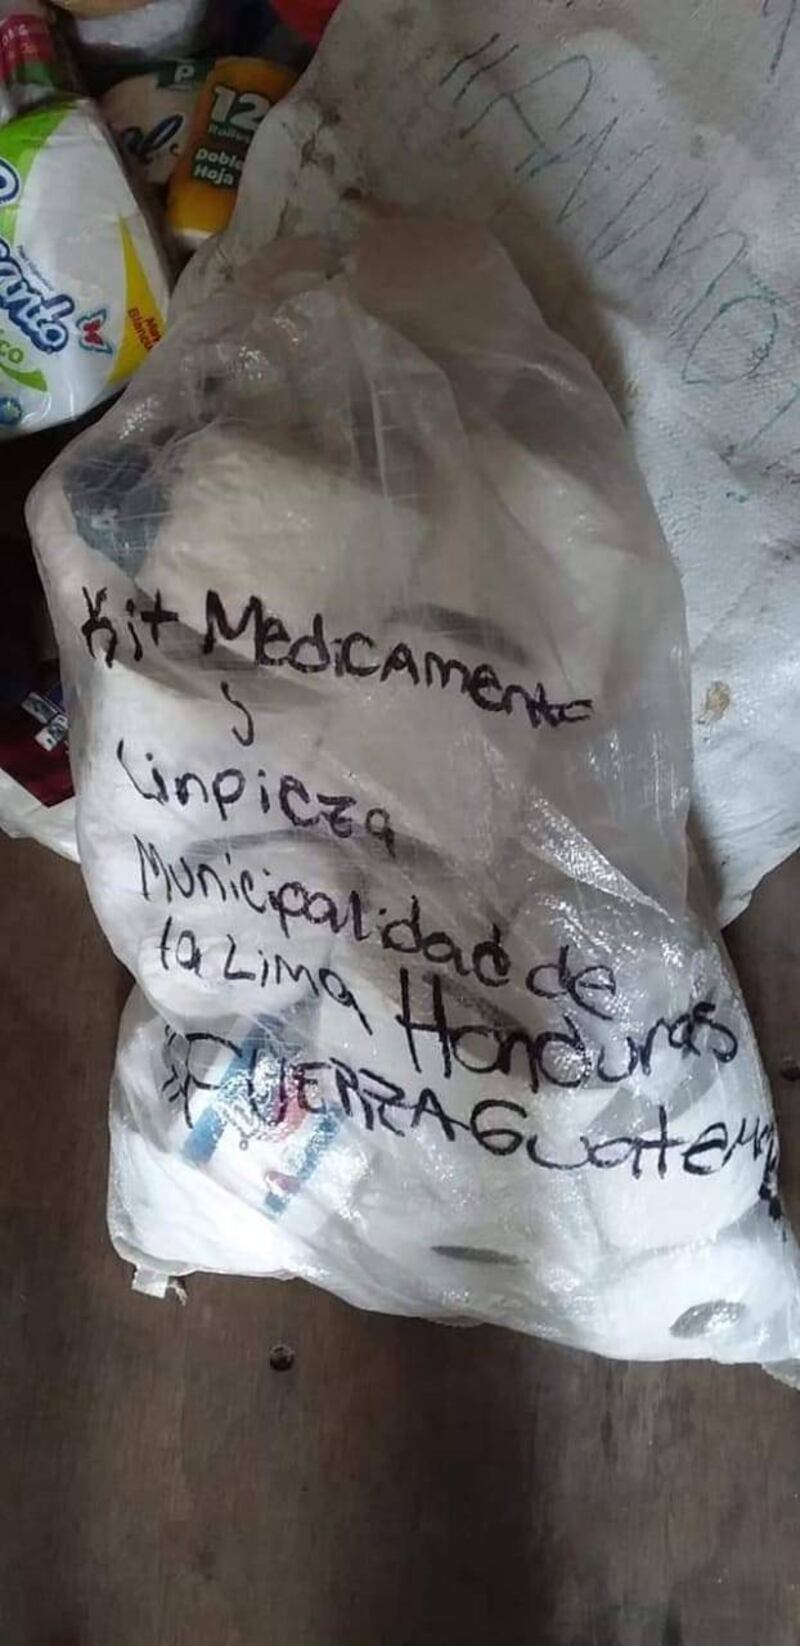 P
12
Rollos
Doble
Hoja
Blanco
"ANIMO
Kit Medicamento
y
Linpieza
Municipalidad de
la Lima Honduras
#FUERZAGuatemala